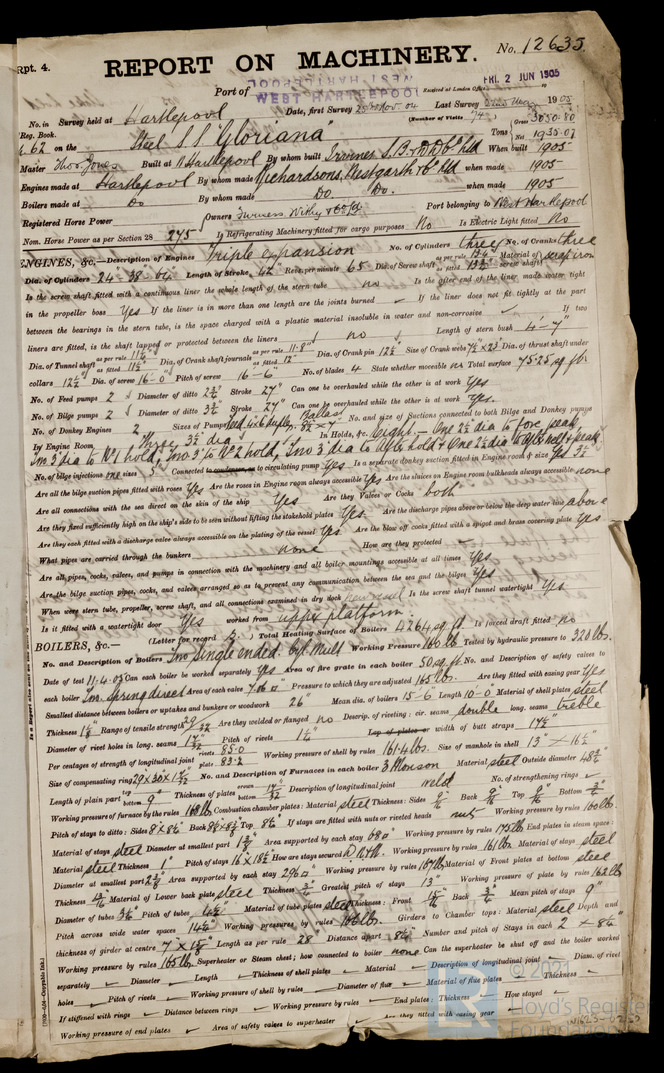 Rpt. 4.
REPORT ON MACHINERY.
No. 12635
Port of WEST HARTLEPOOL
Received at London Office FRI. 2 JUN 1905
No. in Reg. Book. Survey held at Hartlepool Date, first Survey 25th Nov. 04 Last Survey 1905
(Number of Visits 74)
62 on the Steel S.S "Gloriana" Tons Gross 3050.80 Net 1935.07
Master Thos. Jones Built at W Hartlepool By whom built Irvines S.B. & D.D. Co Ltd When built 1905
Engines made at Hartlepool By whom made Richardsons, Westgarth & Co Ltd when made 1905
Boilers made at Do By whom made Do. Do. when made 1905
Registered Horse Power Owners Furness Withy & Co Ld Port belonging to West Hartlepool
Nom. Horse Power as per Section 28 275 Is Refrigerating Machinery fitted for cargo purposes No Is Electric Light fitted No
ENGINES, &c.—Description of Engines Triple expansion No. of Cylinders three No. of Cranks three
Dia. of Cylinders 24"-38"-64" Length of Stroke 42" Revs. per minute 65 Dia. of Screw shaft as per rule 13.4 as fitted 13½ Material of screw shaft scrap iron
Is the screw shaft fitted with a continuous liner the whole length of the stern tube no Is the after end of the liner made water tight
in the propeller boss Yes If the liner is in more than one length are the joints burned ✓ If the liner does not fit tightly at the part
between the bearings in the stern tube, is the space charged with a plastic material insoluble in water and non-corrosive ✓ If two
liners are fitted, is the shaft lapped or protected between the liners no Length of stern bush 4'-7"
Dia. of Tunnel shaft as per rule 11½" as fitted 11½" Dia. of Crank shaft journals as per rule 11.8" as fitted 12" Dia. of Crank pin 12½" Size of Crank webs 7½"x23" Dia. of thrust shaft under
collars 12½" Dia. of screw 16-0" Pitch of screw 16-6" No. of blades 4 State whether moveable no Total surface 75.25 sq. ft.
No. of Feed pumps 2 Diameter of ditto 2¾" Stroke 27" Can one be overhauled while the other is at work Yes.
No. of Bilge pumps 2 Diameter of ditto 3½" Stroke 27" Can one be overhauled while the other is at work Yes.
No. of Donkey Engines 2 Sizes of Pumps Feed 4x6 duplex, Ballast 8½ x 7" No. and size of Suctions connected to both Bilge and Donkey pumps
In Engine Room Three 3½ dia In Holds, &c. Eight - One 2½ dia to fore peak
Two 3" dia to No 1 hold, Two 3" to No 2 hold, Two 3" dia to after hold & One 2½ dia to after well & peak
No. of bilge injections one sizes 5" Connected to condenser, or to circulating pump Yes Is a separate donkey suction fitted in Engine room & size Yes 3½
Are all the bilge suction pipes fitted with roses Yes Are the roses in Engine room always accessible Yes Are the sluices on Engine room bulkheads always accessible none
Are all connections with the sea direct on the skin of the ship Yes Are they Valves or Cocks both
Are they fixed sufficiently high on the ship's side to be seen without lifting the stokehold plates Yes Are the discharge pipes above or below the deep water line above
Are they each fitted with a discharge valve always accessible on the plating of the vessel Yes Are the blow off cocks fitted with a spigot and brass covering plate Yes
What pipes are carried through the bunkers none How are they protected ✓
Are all pipes, cocks, valves, and pumps in connection with the machinery and all boiler mountings accessible at all times Yes
Are the bilge suction pipes, cocks, and valves arranged so as to prevent any communication between the sea and the bilges Yes
When were stern tube, propeller, screw shaft, and all connections examined in dry dock new vessel Is the screw shaft tunnel watertight Yes
Is it fitted with a watertight door Yes worked from upper platform
BOILERS, &c.— (Letter for record B.) Total Heating Surface of Boilers 4264 sq. ft Is forced draft fitted no
No. and Description of Boilers Two Single ended cyl Mult Working Pressure 160 lb Tested by hydraulic pressure to 320 lbs.
Date of test 11.4.05 Can each boiler be worked separately Yes Area of fire grate in each boiler 50 sq. ft. No. and Description of safety valves to
each boiler Two. Spring direct Area of each valve 7.06 □" Pressure to which they are adjusted 165 lbs. Are they fitted with easing gear Yes
Smallest distance between boilers or uptakes and bunkers or woodwork 26" Mean dia. of boilers 15-6 Length 10-0 Material of shell plates steel
Thickness Range of tensile strength Are they welded or flanged no Descrip. of riveting: cir. seams double long. seams treble
Diameter of rivet holes in long. seams Pitch of rivets Lap of plates or width of butt straps 17½"
Per centages of strength of longitudinal joint rivets 85.0 plate 83.2 Working pressure of shell by rules 161.4 lbs. Size of manhole in shell 13" x 16½"
Size of compensating ring No. and Description of Furnaces in each boiler 3 Morison Material steel Outside diameter
Length of plain part top bottom 9" Thickness of plates crown bottom Description of longitudinal joint weld No. of strengthening rings ✓
Working pressure of furnace by the rules Combustion chamber plates: Material steel Thickness: Sides Back Top Bottom
Pitch of stays to ditto: Sides Back Top If stays are fitted with nuts or riveted heads nuts Working pressure by rules 160 lbs.
Material of stays steel Diameter at smallest part Area supported by each stay 68 □" Working pressure by rules 175 lb End plates in steam space:
Material steel Thickness 1" Pitch of stays How are stays secured Working pressure by rules 161 lb. Material of stays steel
Diameter at smallest part Area supported by each stay 296 □" Working pressure by rules 167 lb Material of Front plates at bottom steel
Thickness Material of Lower back plate steel Thickness Greatest pitch of stays 13" Working pressure of plate by rules 162 lb
Diameter of tubes 3¼" Pitch of tubes 4½" Material of tube plates steel Thickness: Front Back Mean pitch of stays 9"
Pitch across wide water spaces 14½" Working pressures by rules Girders to Chamber tops: Material steel Depth and
thickness of girder at centre Length as per rule 28 Distance apart Number and pitch of Stays in each
Working pressure by rules 165 lb Superheater or Steam chest; how connected to boiler none Can the superheater be shut off and the boiler worked
separately ✓ Diameter ✓ Length ✓ Thickness of shell plates ✓ Material ✓ Description of longitudinal joint ✓ Diam. of rivet
holes ✓ Pitch of rivets ✓ Working pressure of shell by rules ✓ Diameter of flue ✓ Material of flue plates ✓ Thickness ✓
If stiffened with rings ✓ Distance between rings ✓ Working pressure by rules ✓ End plates: Thickness ✓ How stayed ✓
Working pressure of end plates ✓ Area of safety valves to superheater ✓ Are they fitted with easing gear ✓
© 2021
Lloyd's Register
Foundation